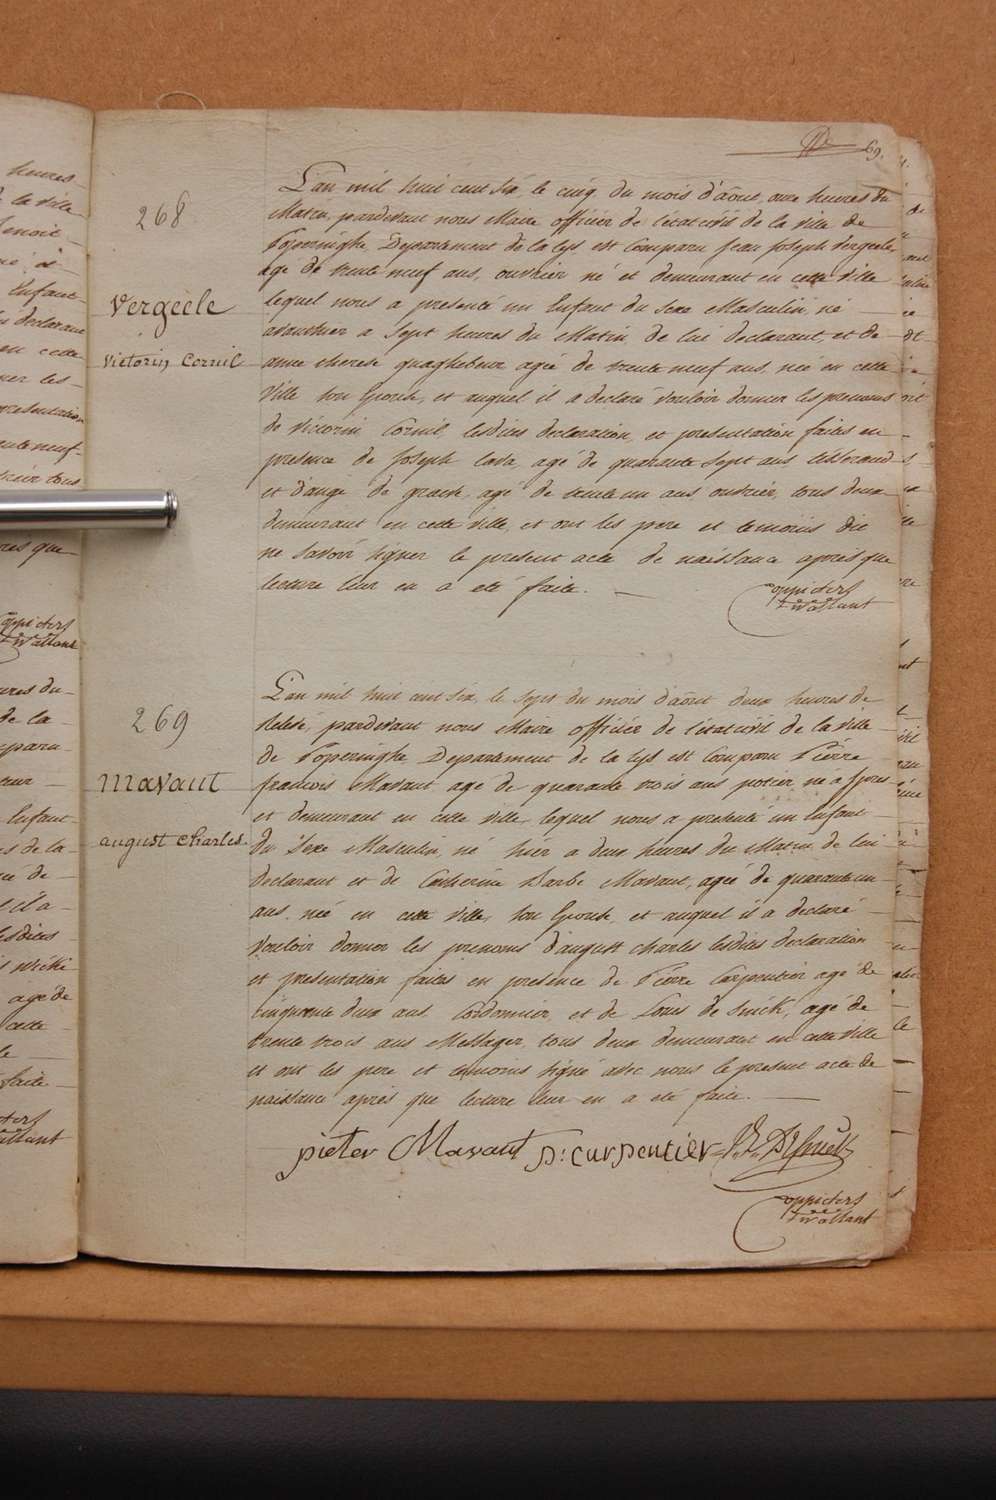 69.
268
Vergeele
Victorin Cornil
L'an mil huit cent Six le cinq du mois d'août, onze heures du
Matin, pardevant nous Maire officier de l'état civil de la ville de
Poperinghe Departement de la Lys est Comparu Jean Joseph Vergeele
agé de trente neuf ans, ouvrier né et demeurant en cette ville
lequel nous a presenté un Enfant du sexe Masculin, né
avanthier a Sept heures du Matin de lui declarant, et de
anne therese quaghebeur agée de trente neuf ans, née en cette
Ville son Epouse, et auquel il a declaré vouloir donner les prenoms
de Victorin Cornil, lesdites declaration et presentation faites en
presence de Joseph agé de quarante Sept ans
et d'ange de graeve, agé de trente un ans ouvrier, tous deux
demeurant en cette ville, et ont les pere et temoins dit
ne Savoir signer le present acte de naissance après que
lecture leur en a été faite.
oppicters
Wallant
269
Mavaut
august Charles.
L'an mil huit cent Six, le Sept du mois d'août deux heures de
Relevé, pardevant nous Maire officier de l'état civil de la ville
de Poperinghe Departement de la Lys est Comparu Pierre
francois Mavaut agé de quarante trois ans potier né a Ypres
et demeurant en cette ville, lequel nous a presenté un Enfant
du Sexe Masculin, né hier a deux heures du Matin, de lui
Declarant et de Catherine Barbe Mavaut, agée de quarante un
ans, née en cette ville, son Epouse, et auquel il a declaré
Vouloir donner les prenoms d'august Charles lesdites declaration
et presentation faites en presence de Pierre Carpentier agé de
cinquante deux ans Cordonnier, et de Louis de Snick, agé de
trente trois ans Messager, tous deux demeurant en cette Ville
et ont les pere et temoins signé avec nous le present acte de
naissance après que lecture leur en a été faite.
pieter Mavaut p: carpentier
oppicters
Wallant